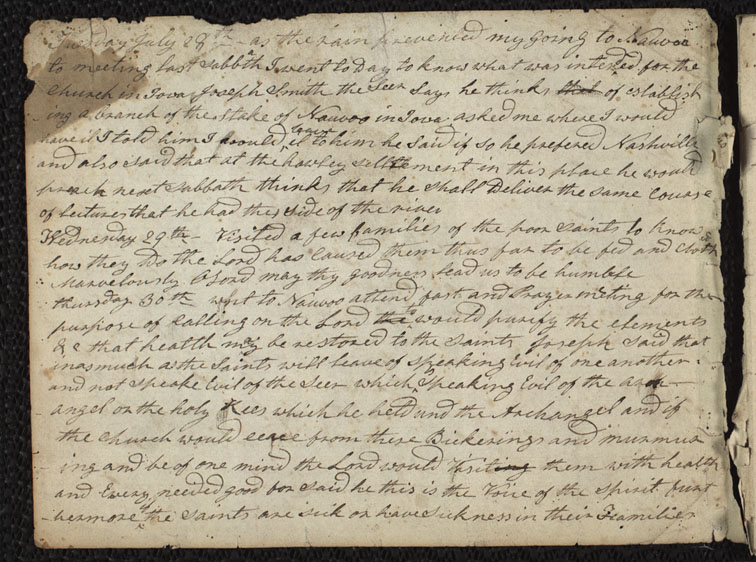 Tuesday July 28th as the rain prevented my going to Nauvoo
to meeting last Sabbth I went to Day to know what was intended for the
Church in Iova Joseph Smith the Seer Says he thinks that of establish
ing a branch of the stake of Nauvoo in Iova asked me where I would
have it I told him I would leave it to him he said if so he prefered Nashville
and also said that at the hawley settlement in this place he would
preach next Sabbath thinks that he shall Deliver the same Course
of lectures that he had this side of the river
Wednesday 29th - Visited a few families of the poor saints to know
how they do the Lord has caused them thus far to be fed and cloth
Marvelously O Lord may thy goodness lead us to be humble
thursday 30th went to Nauvoo attend fast and Prayer meeting for the
purpose of calling on the Lord that would purify the elements
&c that health may be restored to the Saints Joseph Said that
inasmuch as the Saints will leave of Speaking Evil of one another
and not Speake Evil of the Seer which is Speaking Evil of the
angel or the holy Kees which he held und the Archangel and if
the Church would cence from these Bickerings and murmur
ing and be of one mind the Lord would Visiting them with health
and Every needed good for said he this is the Voice of the Spirit furt
hermore the Saints are sick or have sickness in their Families